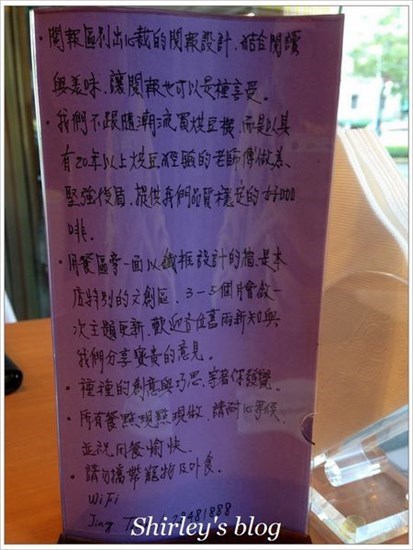 ・閱報區別出心裁的閱報設計,結合閱讀
與美味,讓閱報也可以是種享受。
・我們不跟隨潮流買烘豆機,而是以具
有20年以上烘豆經驗的老師傅做為
堅強後盾,提供我們品質穩定的好咖
啡。
・用餐區旁一面以鐵框設計的牆,是本
店特別的文創區,3-5個月會做一
次主題更新,歡迎各位舊雨新知與
我們分享寶貴的意見。
・種種的創意與巧思,等著你發覺。
・所有餐點現點現做,請耐心等候,
並祝用餐愉快。
・請勿攜帶寵物及外食。
WiFi
Jing 29481888
Shirley's blog